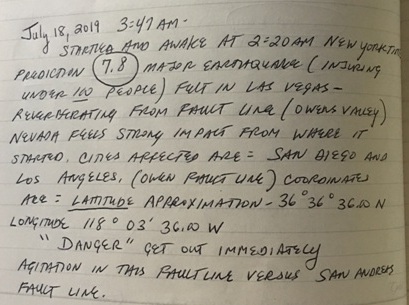 July 18, 2019 3:47 AM-
STARTLED AND AWAKE AT 2:20 AM NEW YORK TIME
PREDICTION 7.8 MAJOR EARTHQUAKE (INJURING
UNDER 100 PEOPLE) FELT IN LAS VEGAS-
REVERBERATING FROM FAULT LINE (OWENS VALLEY)
NEVADA FEELS STRONG IMPACT FROM WHERE IT
STARTED. CITIES AFFECTED ARE = SAN DIEGO AND
LOS ANGELES. (OWEN FAULT LINE) COORDINATES
ARE = LATITUDE APPROXIMATION - 36° 36° 36.00 N
LONGITUDE 118° 03' 36.00 W
"DANGER" GET OUT IMMEDIATELY
AGITATION IN THIS FAULTLINE VERSUS SAN ANDREAS
FAULT LINE.